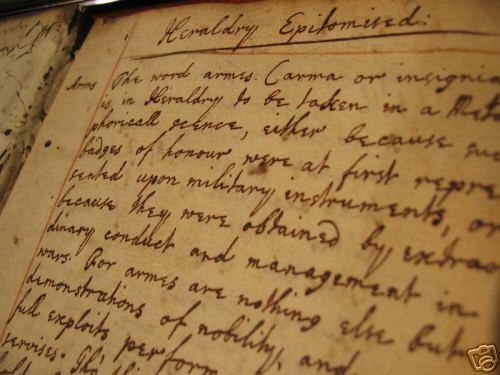 Heraldry Epitomised:
Arms The word armes. (arma or insignia
is, in Heraldry to be taken in a Meta
phoricall scence, either because suc
badges of honour were at first repre
sented upon military instruments, or
because they were obtained by extraor
dinary conduct and management in
wars. For armes are nothing else but
demonstrations of nobility, and
full exploits perform
servises.